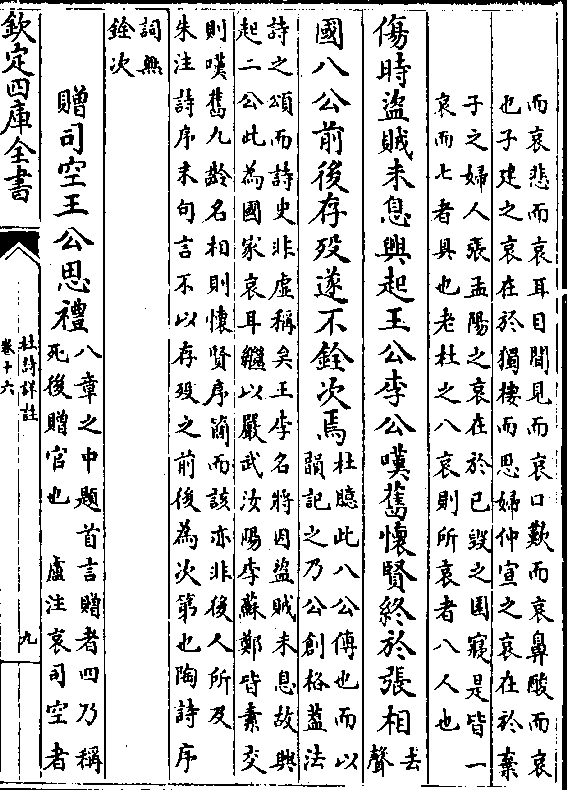 而哀悲而哀耳目聞見而哀口歎而哀鼻酸而哀
也子建之哀在於獨棲而思婦仲宣之哀在於棄
子之婦人張孟陽之哀在於已毀之園寢是皆一
哀而七者具也老杜之八哀則所哀者八人也
傷時盜賊未息興起王公李公嘆舊懷賢終於張相
去
聲
國八公前後存歿遂不銓次焉
杜臆此八公傳也而以
韻記之乃公創格蓋法
詩之頌而詩史非虛稱矣王李名將因盜賊未息故興
起二公此為國家哀耳繼以嚴武汝陽李蘇鄭皆素交
則嘆舊九齡名相則懷賢序簡而該亦非後人所及
朱注詩序末句言不以存歿之前後為次第也陶詩序
詞無
銓次
贈司空王公思禮
八章之中題首言贈者四乃稱
死後贈官也 盧注哀司空者
欽定四庫全書
杜詩詳註
卷十六
九